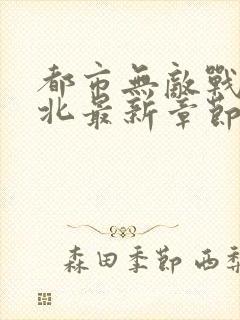 都市無敵戰
北最新章節
森田季節 西